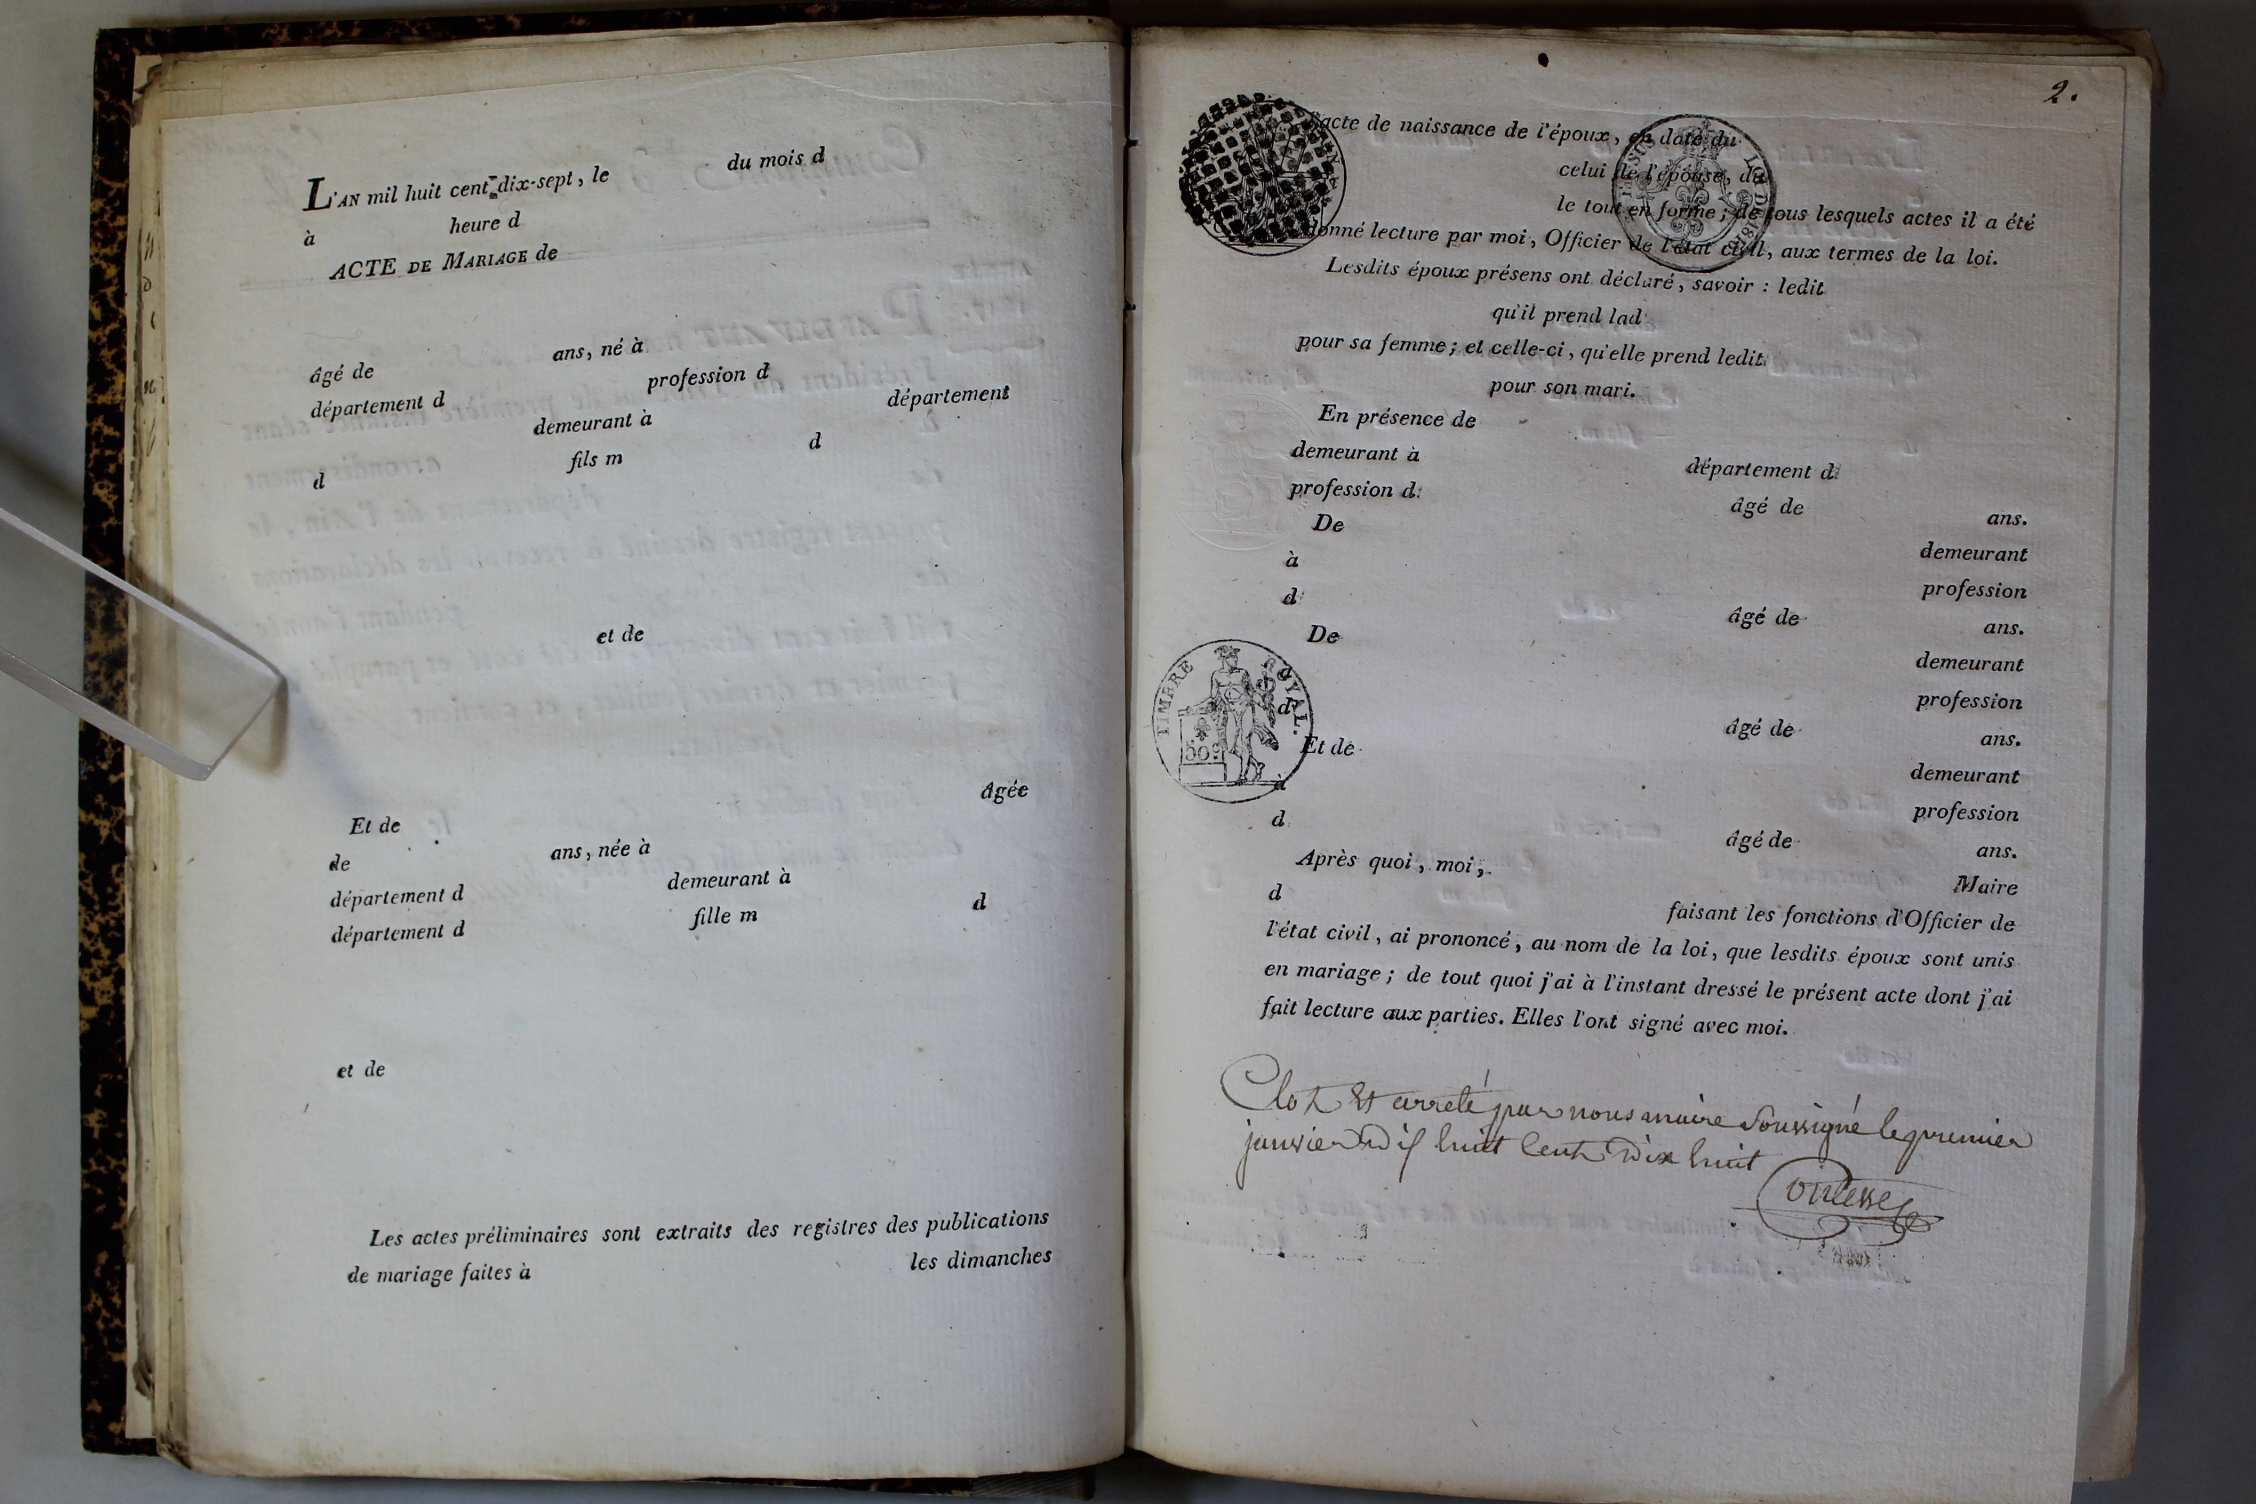 L'AN mil huit cent dix-sept, le du mois d
à heure d
ACTE DE MARIAGE de
âgé de ans, né à
département d profession d
demeurant à département
d fils m d
et de
Et de âgée
de ans, née à
département d demeurant à
département d fille m d
et de
Les actes préliminaires sont extraits des registres des publications
de mariage faites à les dimanches
2.
l'acte de naissance de l'époux, en date du
celui de l'épouse, du
le tout en forme; de tous lesquels actes il a été
donné lecture par moi, Officier de l'état civil, aux termes de la loi.
Lesdits époux présens ont déclaré, savoir : ledit
qu'il prend lad
pour sa femme; et celle-ci, qu'elle prend ledit
pour son mari.
En présence de
demeurant à département d
profession d âgé de ans.
De demeurant
à profession
d âgé de ans.
De demeurant
profession
d âgé de ans.
Et de demeurant
à profession
d âgé de ans.
Après quoi, moi, Maire
d faisant les fonctions d'Officier de
l'état civil, ai prononcé, au nom de la loi, que lesdits époux sont unis
en mariage; de tout quoi j'ai à l'instant dressé le présent acte dont j'ai
fait lecture aux parties. Elles l'ont signé avec moi.
TIMBRE ROYAL.
50c
Clot et arreté par nous maire soussigné le premier
janvier mil huit cent dix huit